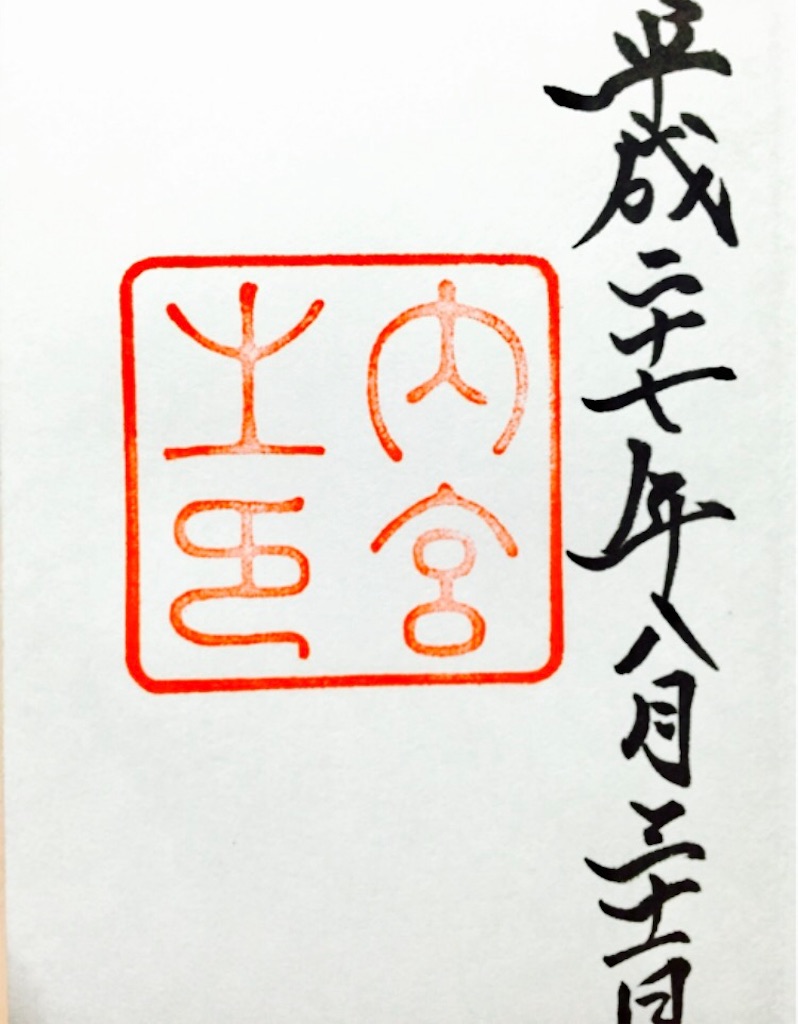 平成二十七年八月三十一日
内宮
之印